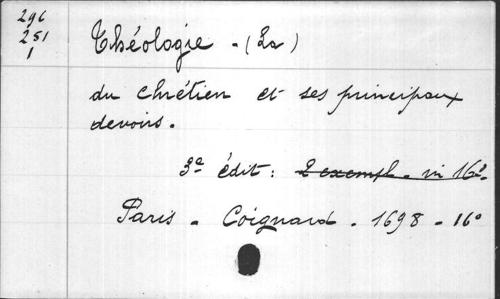 296
251
1
Théologie - (La)
du chrétien et ses principaux
devoirs.
3e édit : 2 exempl. in 16°
Paris - Coignard - 1698 - 16°